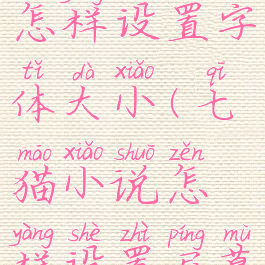 怎样设置字
tǐ dà xiǎo qī
体大小(七
māo xiǎo shuō zěn
猫小说怎
yàng shè zhì píng mù
样设置屏幕